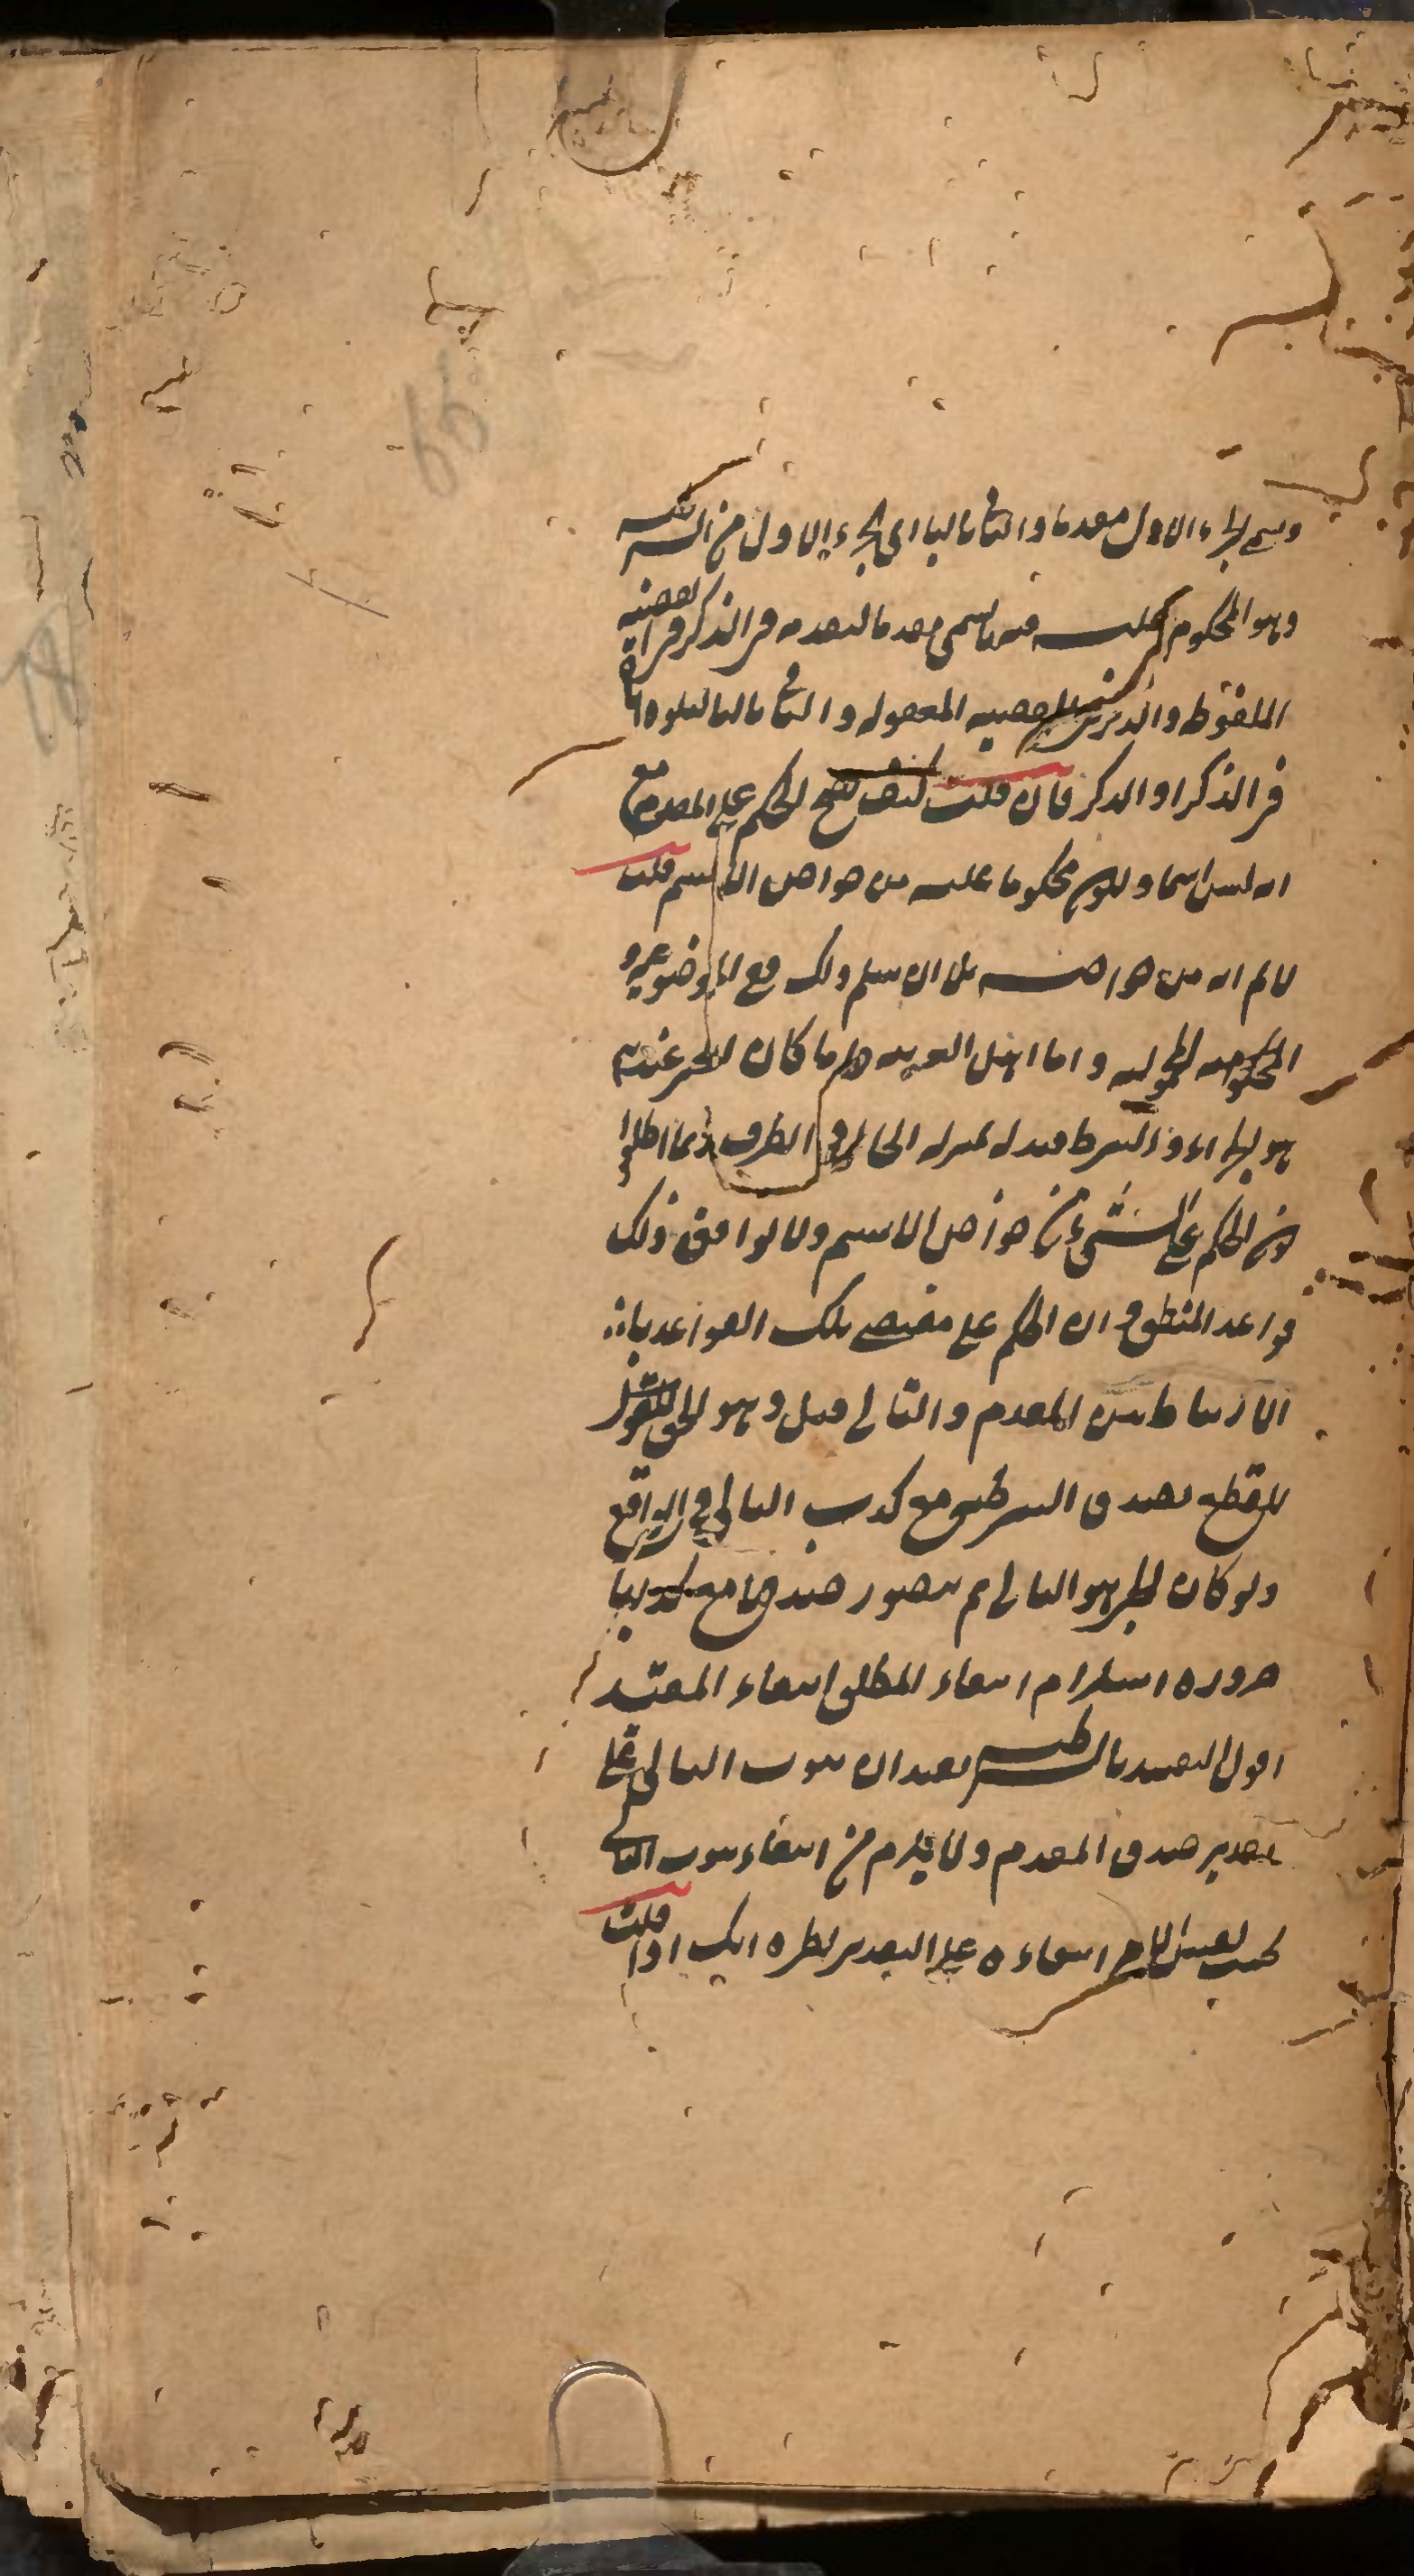 ويسمى الجزء الاول مقدما والثاني تاليا اى الجزء الاول من الشرطية
وهو المحكوم عليه فيها يسمى مقدما لتقدمه فى الذكر فى القضية
الملفوظة والذكر فى القضية المعقولة والثاني تاليا لتلوه اياه
فى الذكر او الذكر فان قلت كيف يصح الحكم على المقدم مع
انه ليس اسما وكون محكوما عليه من خواص الاسم قلت
لانم انه من خواصه بل ان سلم ذلك فمع الموضوعية و
المحكومية الحملية واما اهل العربية فلما كان الخبر عندهم
هو الجزاء والشرط قيد له بمنزلة الحال و الظرف ربما اطلقوا
كون الحكم على الشئ من خواص الاسم ولا يوافق ذلك
قواعد المنطق فان الحكم على مقتضى تلك القواعد بان
الارتباط بين المقدم والتالى قيل وهو الحق
للقطع بصدق الشرطية مع كذب التالى فى الواقع
ولو كان الخبر هو التالى لم يتصور صدقها مع كذبها
ضرورة استلزام انتفاء المطلق انتفاء المقيد
اقول التقييد بالشرطية يفيد ان ثبوت التالى على
تقدير صدق المقدم ولا يلزم من انتفاء ثبوت التالى
بحسب نفس الامر انتفاءه على التقدير نظيره انك اذا قلت
65